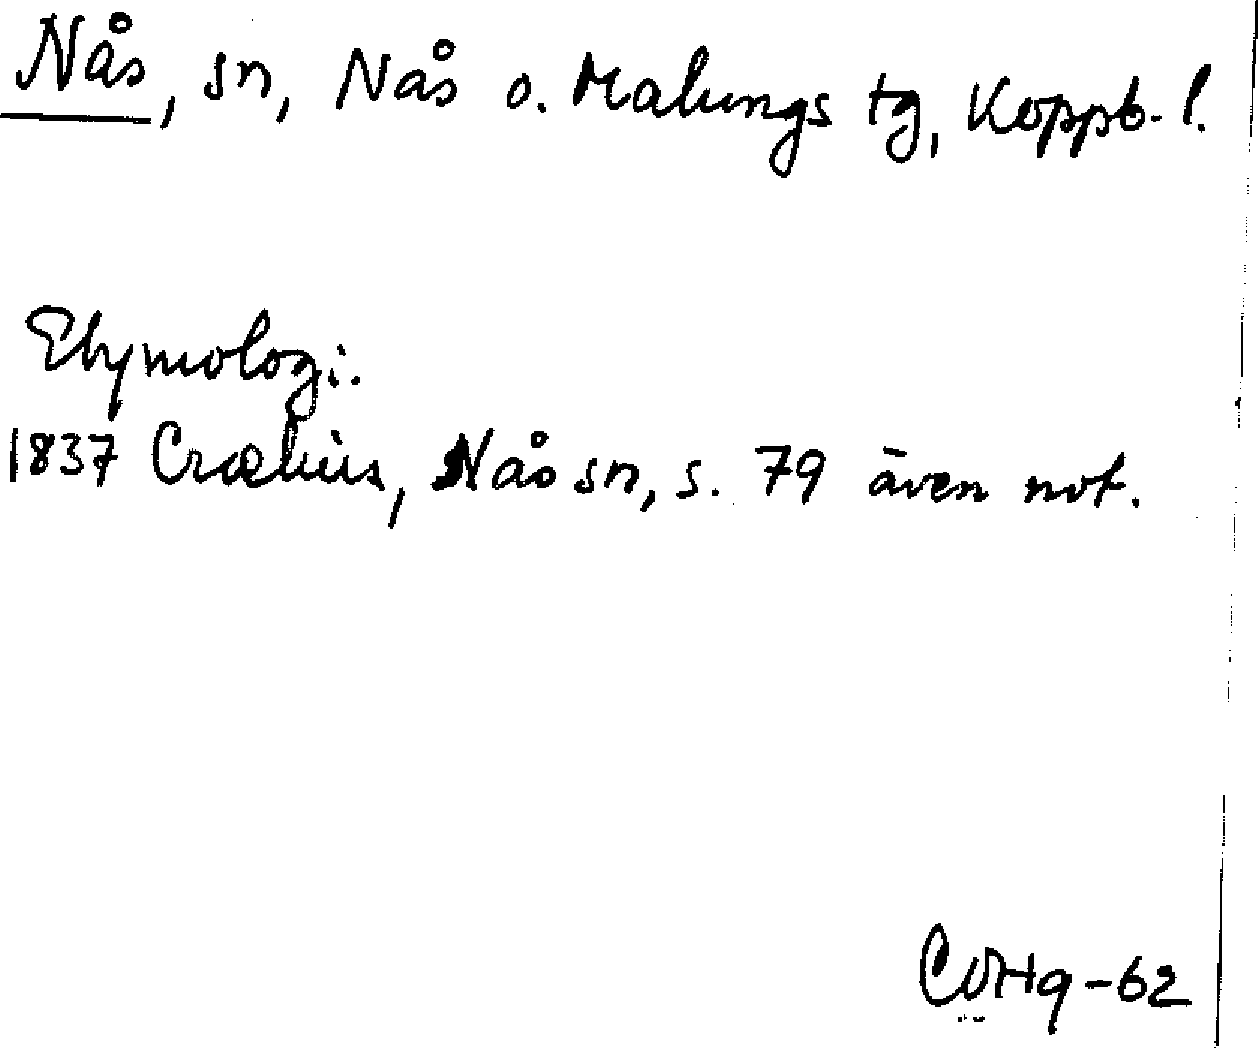 Nås, sn, Nås o. Malungs tg, Koppb. l.
Etymologi.
1837 Crælius, Nås sn, s. 79 även not.
-62